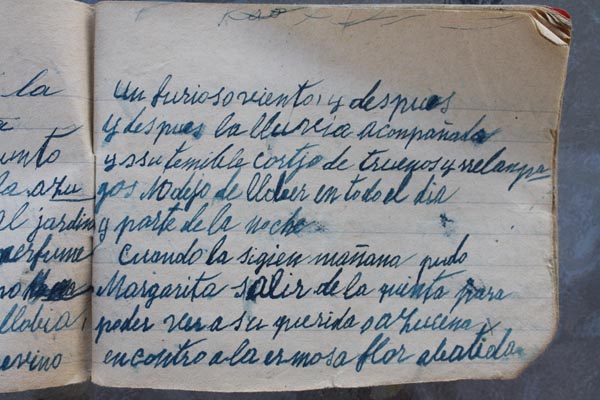 la
unto
la azu
al jardin
perfume
llobia,
evino
un furioso viento, y despues
y despues la lluvia acompañada
y a su temible cortjo de truenos y relampa
gos No dejo de llober en todo el dia
y parte de la noche
Cuando la sigien mañana pudo
Margarita salir de la quinta para
poder ver a su querida o azucena y
encontro a la ermosa flor abatida